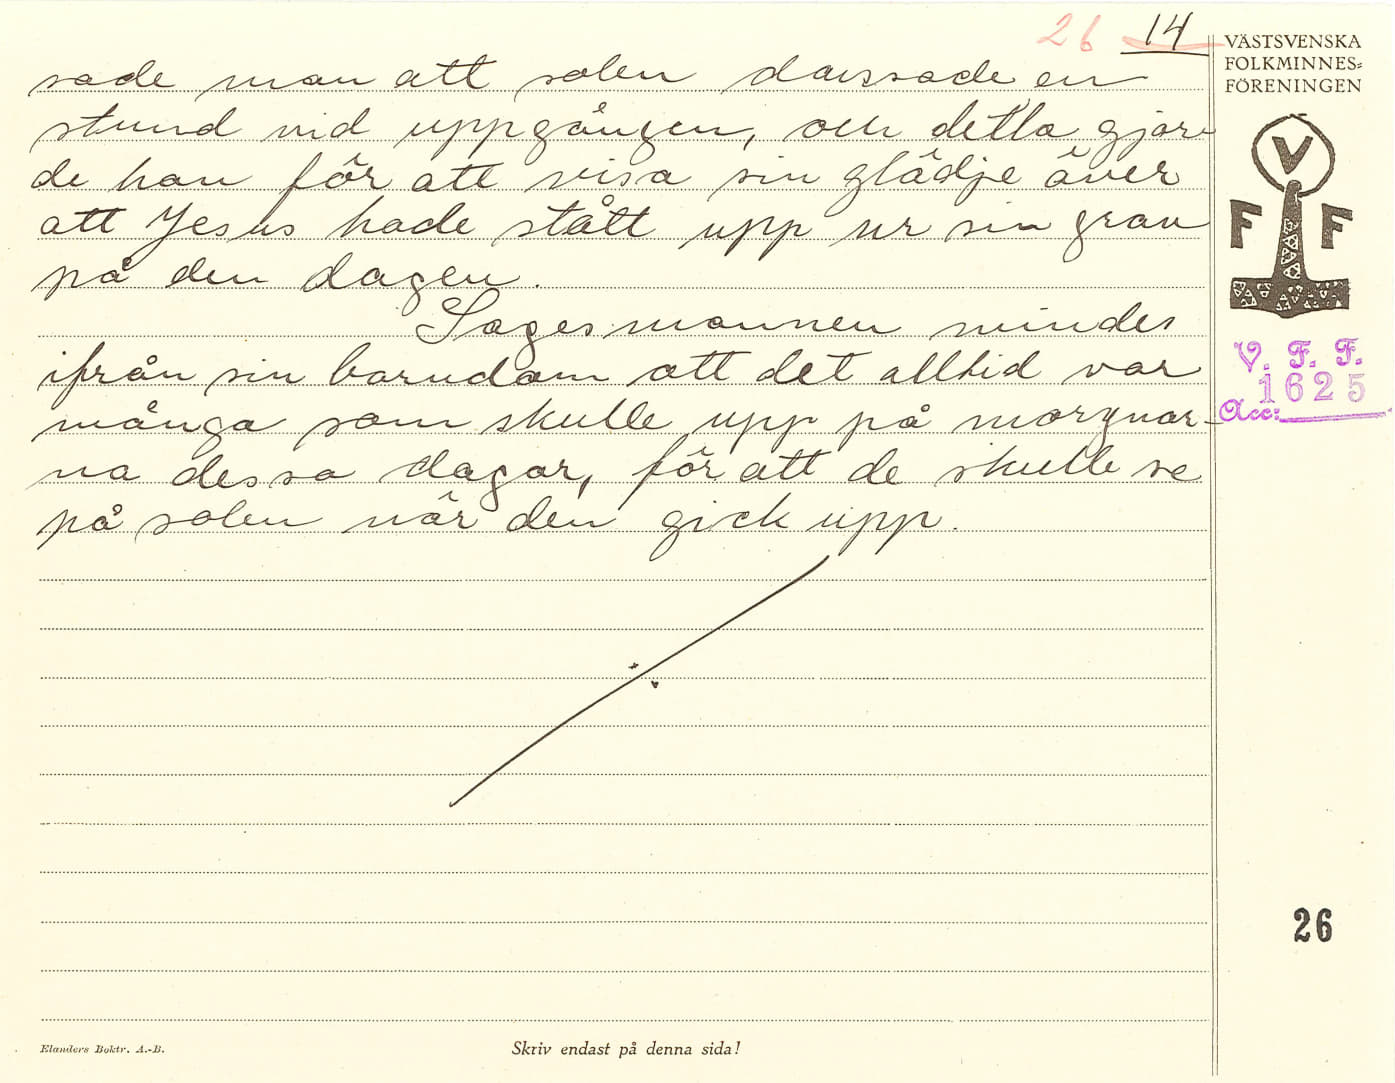 26 14
VÄSTSVENSKA
FOLKMINNES=
FÖRENINGEN
sade man att solen dansade en
stund vid uppgången, och detta gjor-
de han för att visa sin glädje över
att Jesus hade stått upp ur sin grav
på den dagen.
Sagesmannen mindes
ifrån sin barndom att det alltid var
många som skulle upp på morgnar-
na dessa dagar, för att de skulle se
på solen när den gick upp.
V
F F
V. F. F.
1625
Acc:
26
Elanders Boktr. A.-B.
Skriv endast på denna sida!